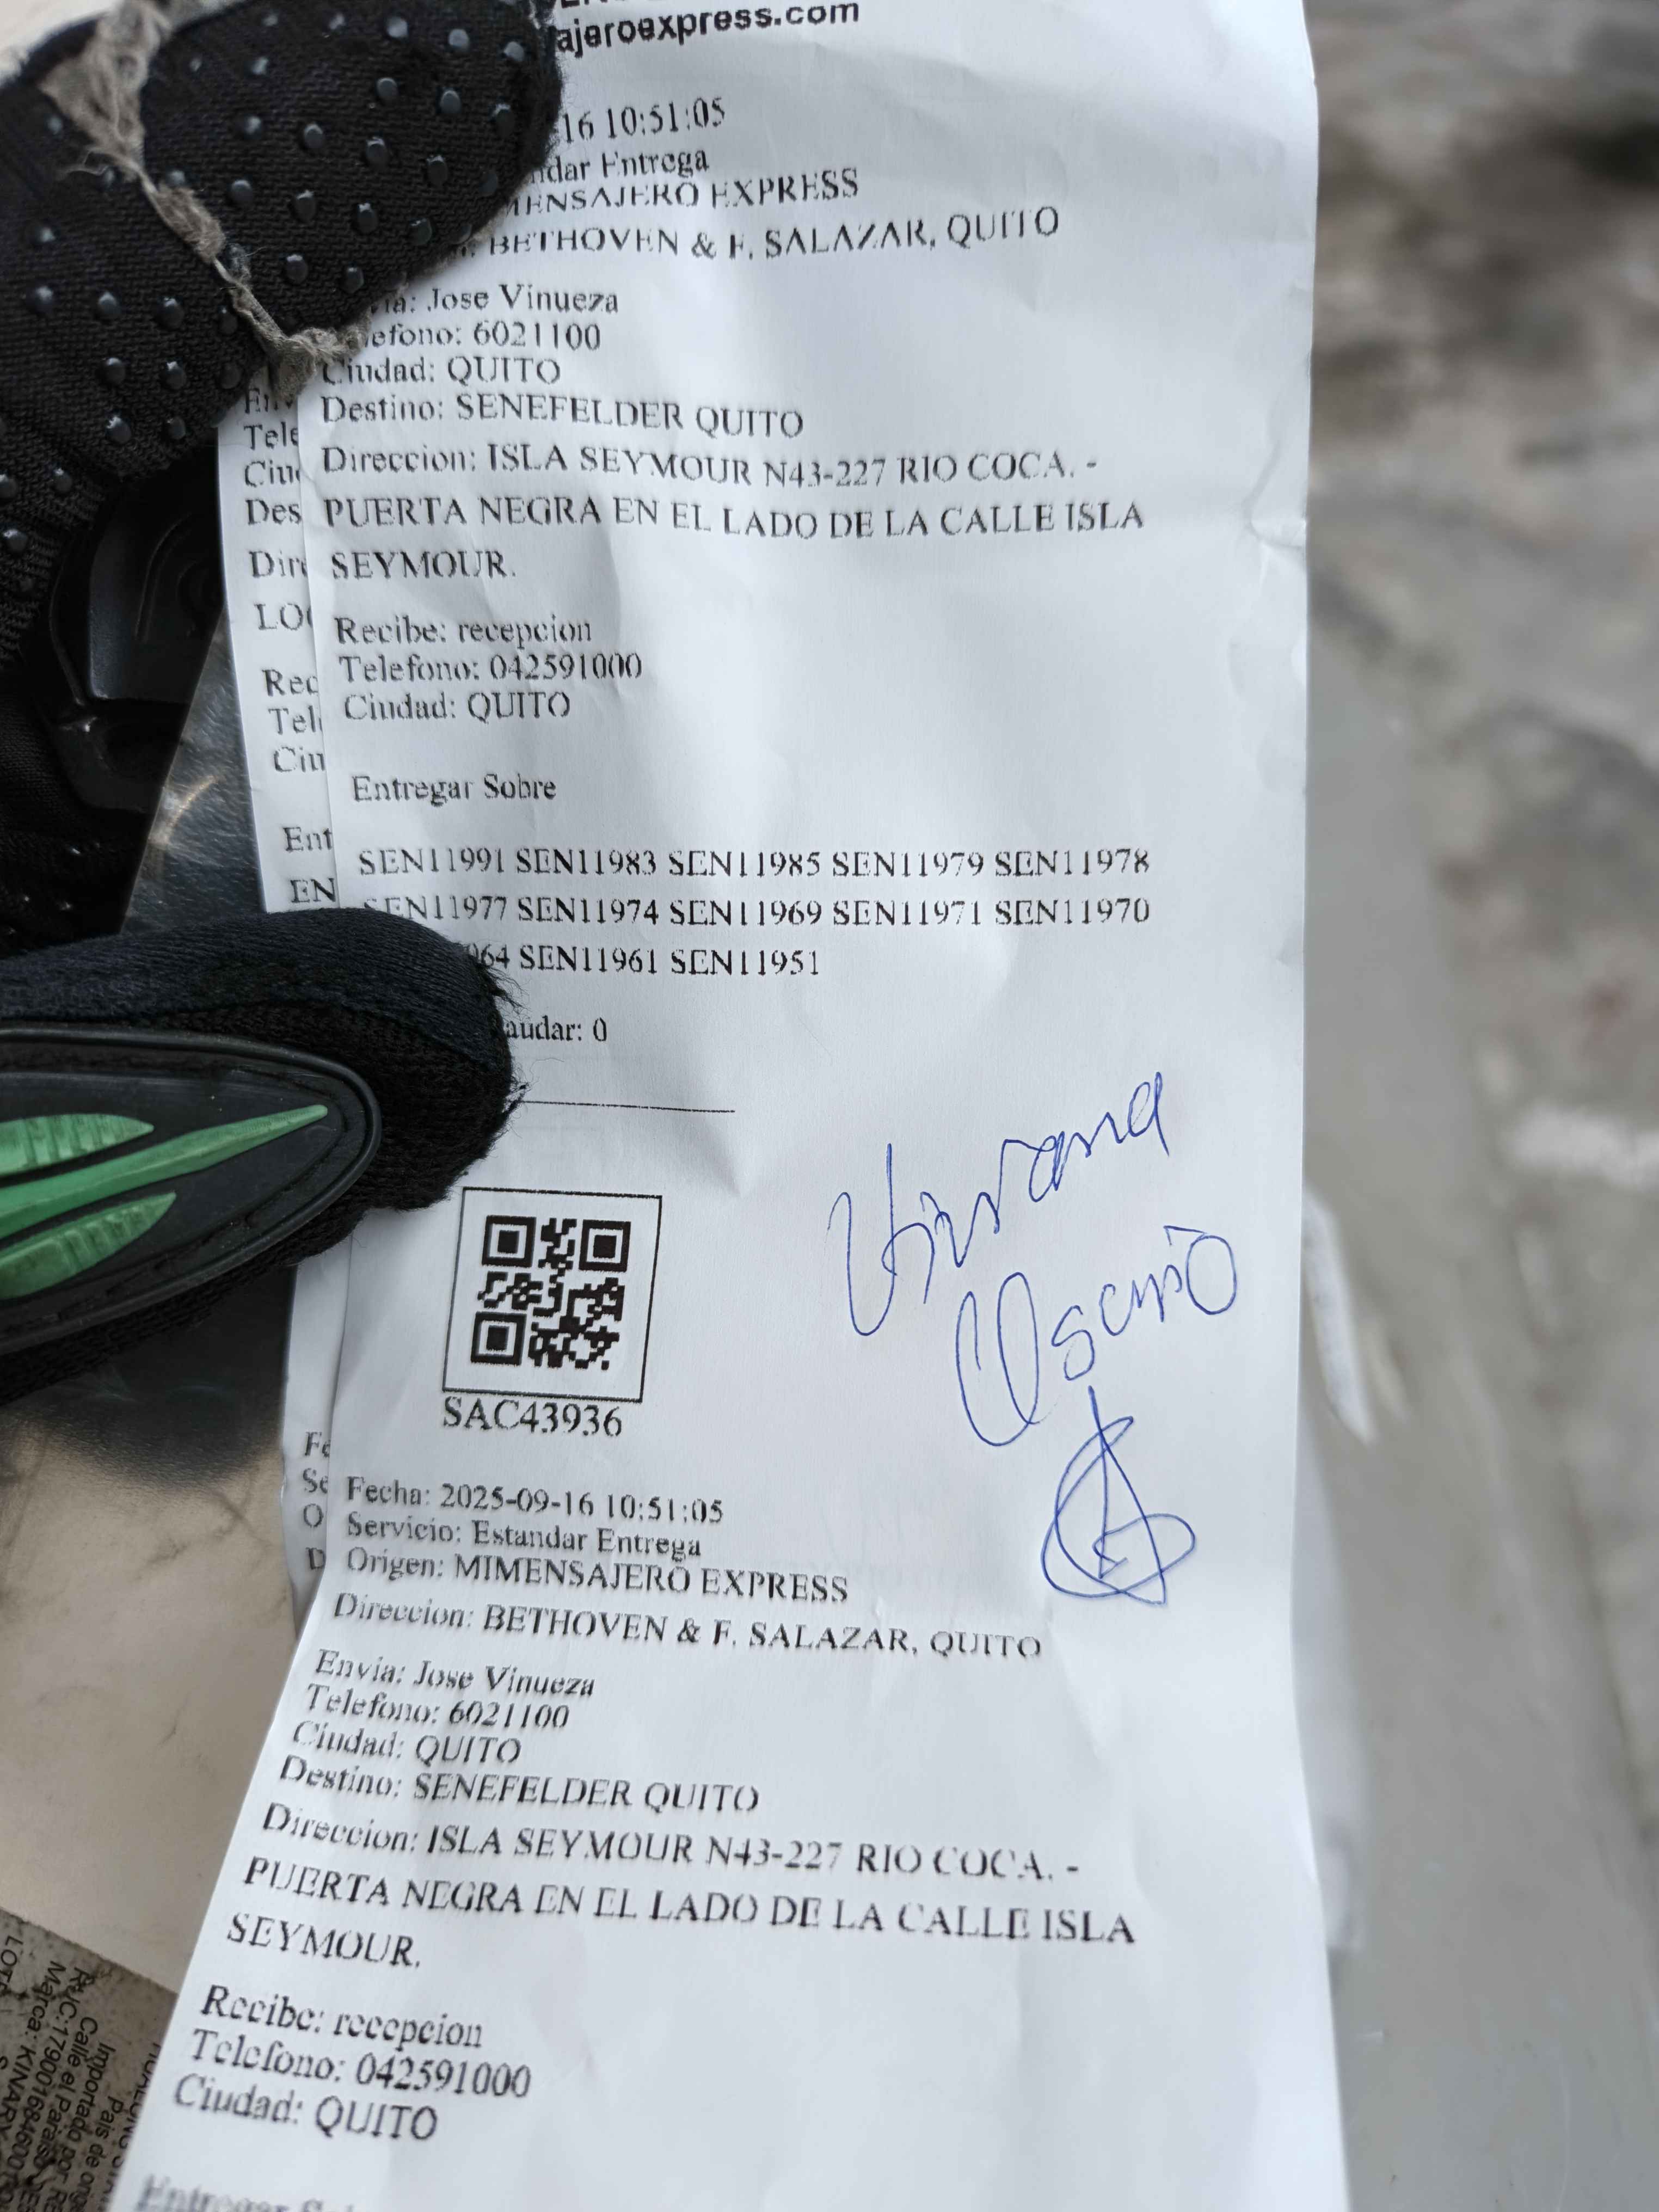 ajeroexpress.com
16 10:51:05
Entrega
MENSAJERO EXPRESS
BETHOVEN & F. SALAZAR, QUITO
Jose Vinueza
efono: 6021100
Ciudad: QUITO
Destino: SENEFELDER QUITO
Direccion: ISLA SEYMOUR N43-227 RIO COCA. -
PUERTA NEGRA EN EL LADO DE LA CALLE ISLA
SEYMOUR.
Recibe: recepcion
Telefono: 042591000
Ciudad: QUITO
Entregar Sobre
SEN11991 SEN11983 SEN11985 SEN11979 SEN11978
SEN11977 SEN11974 SEN11969 SEN11971 SEN11970
964 SEN11961 SEN11951
audar: 0
Viviana
Osorio
SAC43936
Fecha: 2025-09-16 10:51:05
Servicio: Estandar Entrega
Origen: MIMENSAJERO EXPRESS
Direccion: BETHOVEN & F. SALAZAR, QUITO
Envia: Jose Vinueza
Telefono: 6021100
Ciudad: QUITO
Destino: SENEFELDER QUITO
Direccion: ISLA SEYMOUR N43-227 RIO COCA. -
PUERTA NEGRA EN EL LADO DE LA CALLE ISLA
SEYMOUR.
Recibe: recepcion
Telefono: 042591000
Ciudad: QUITO
Entregar